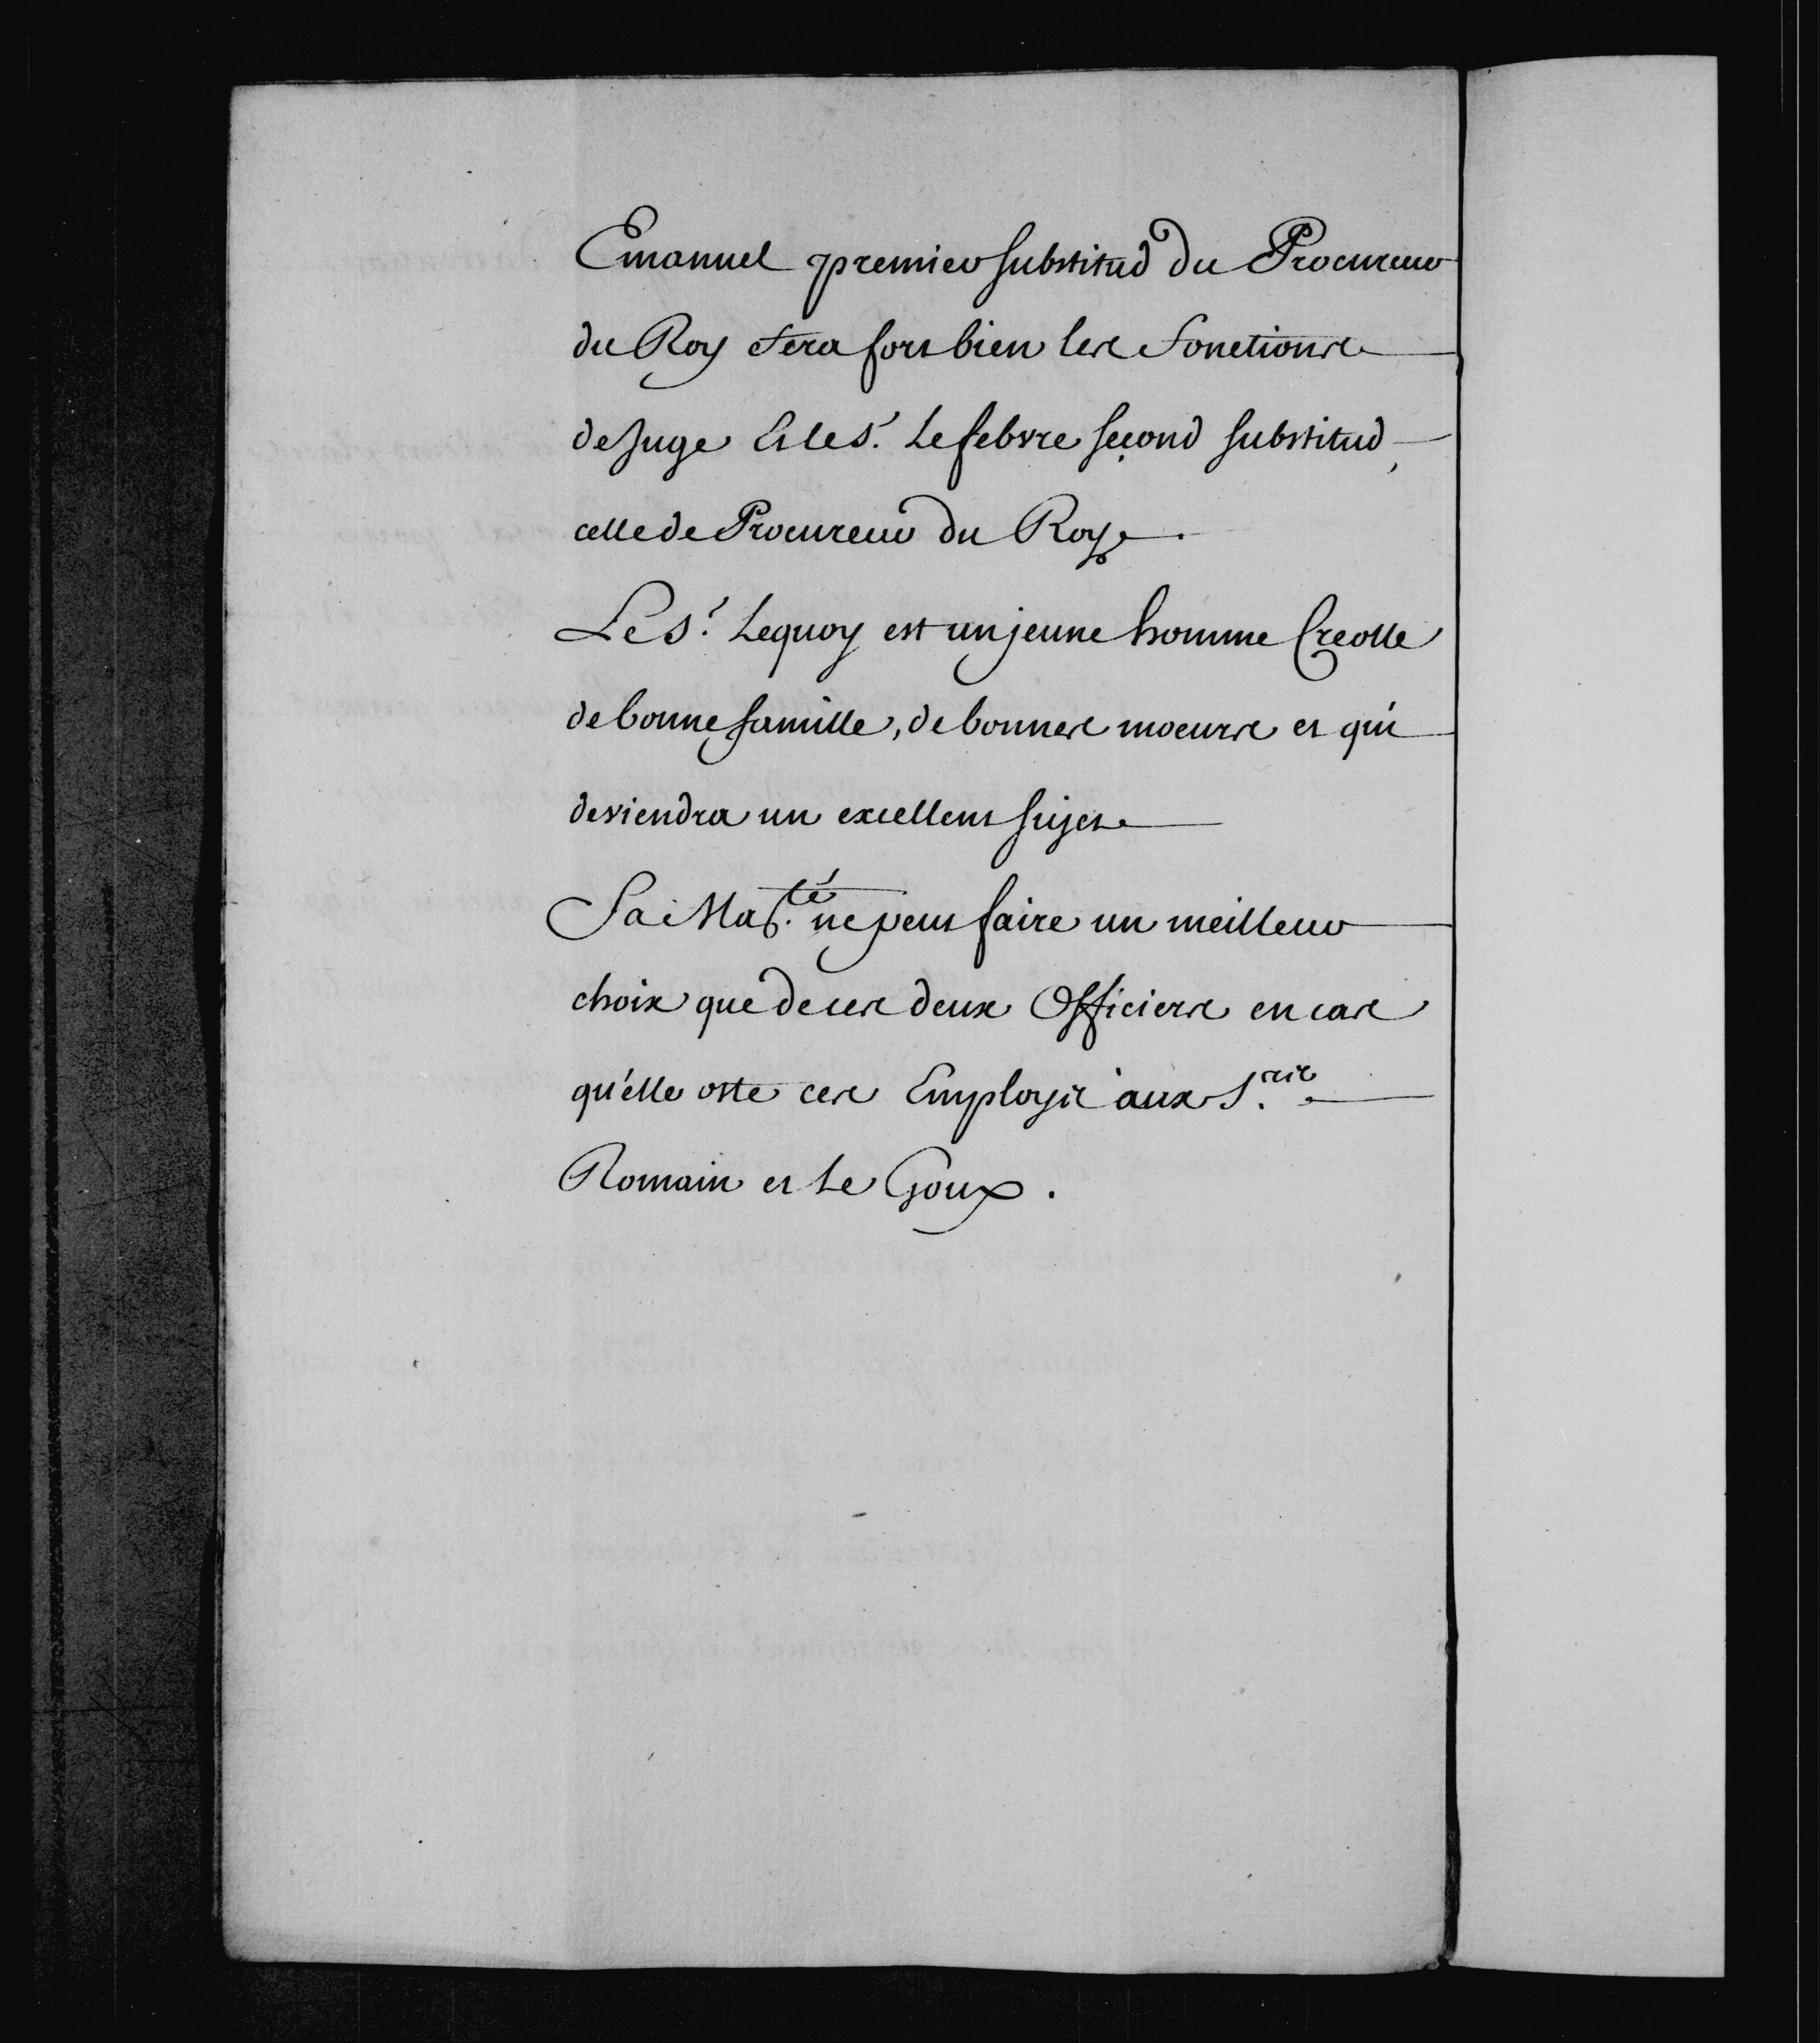 Emanuel premier substitud du Procureur
du Roy fera fort bien les fonctions
de Juge Et le S.r Lefebvre second substitud,
celle de Procureur du Roy.
Le S.r Lequoy est un jeune homme Creolle
de bonne famille, de bonnes moeurs et qui
deviendra un excellent sujet
Sa Maj.té ne peut faire un meilleur
choix que de ces deux Officiers en cas
qu'elle oste ces Employs aux S.rs
Romain et Le Goux.